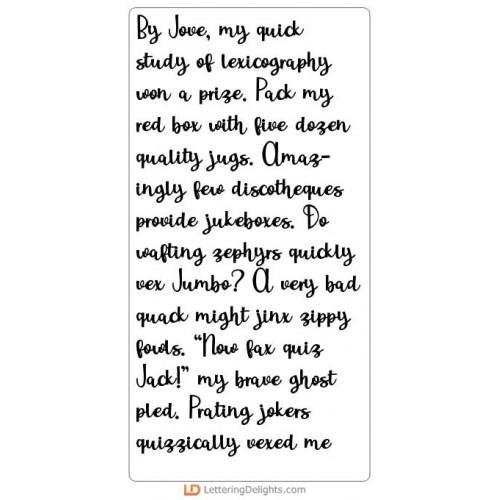 By Jove, my quick
study of lexicography
won a prize. Pack my
red box with five dozen
quality jugs. Amaz-
ingly few discotheques
provide jukeboxes. Do
wafting zephyrs quickly
vex Jumbo? A very bad
quack might jinx zippy
fowls. “Now fax quiz
Jack!” my brave ghost
pled. Prating jokers
quizzically vexed me
LD LetteringDelights.com